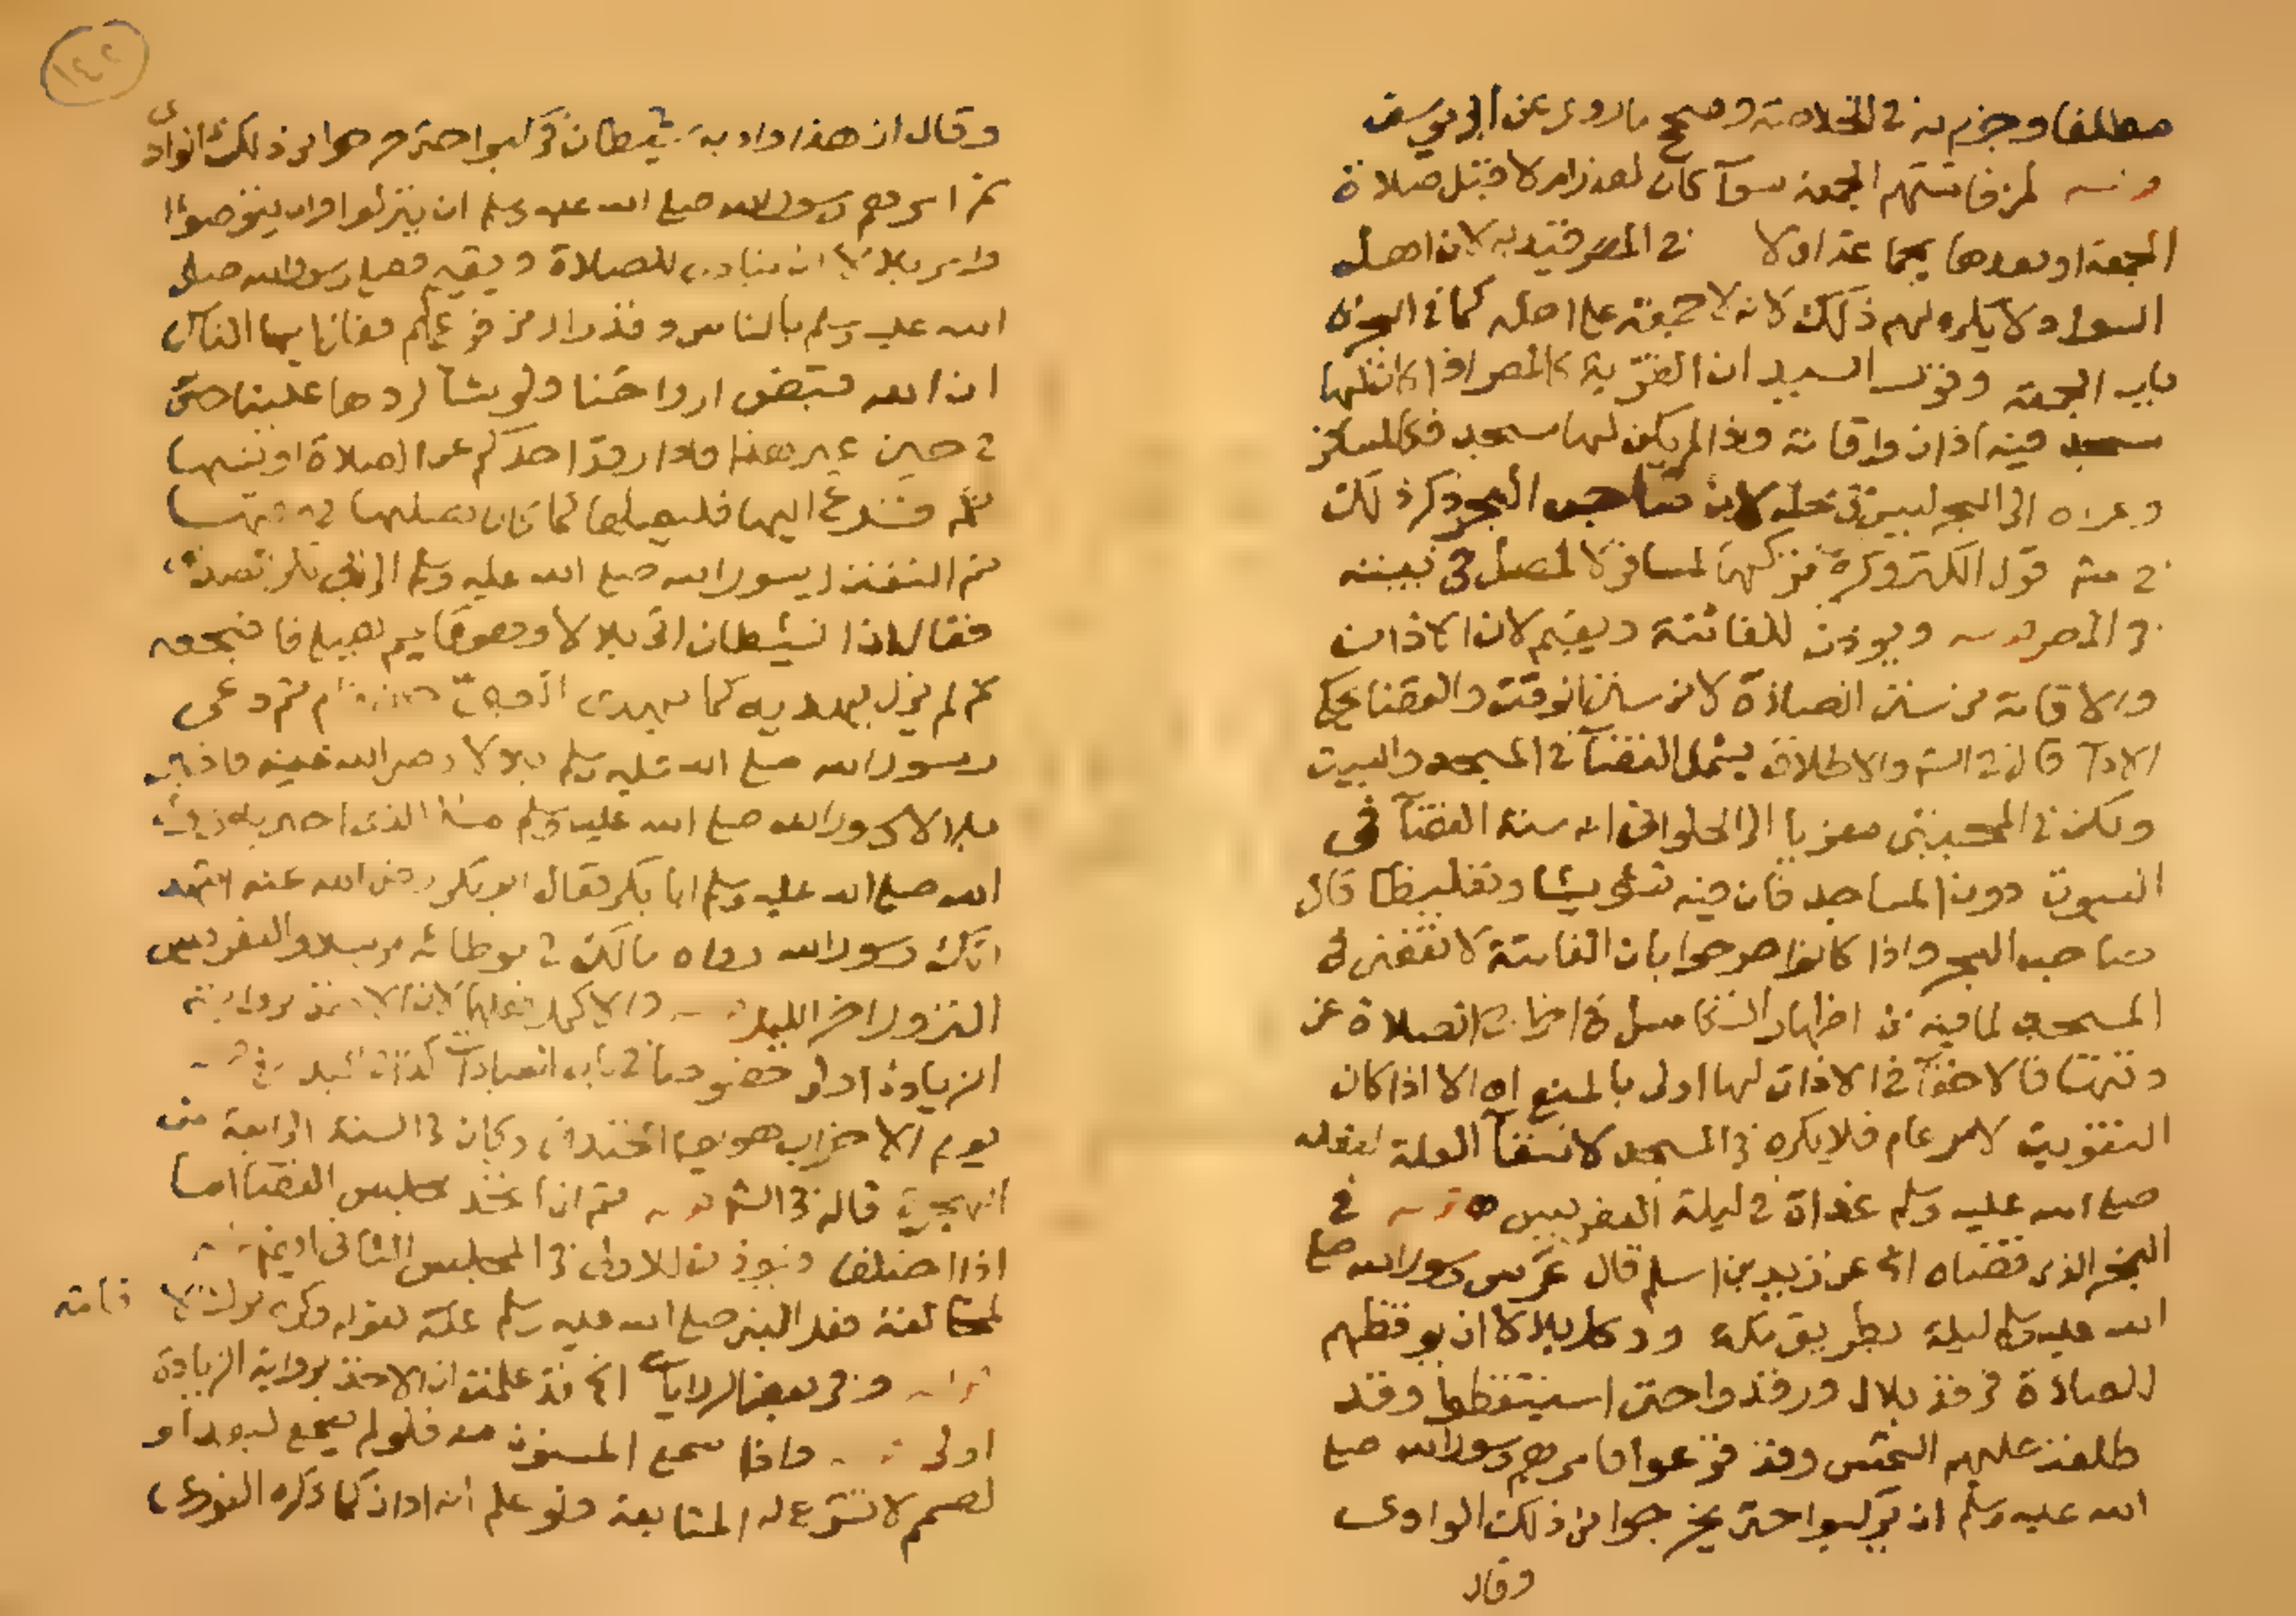 مطلقا وجزم به في الخلاصة وصحح ما روي عن ابي يوسف
لمن فاتتهم الجمعة سوآ كان لعذر ام لا قبل صلاة
الجمعة او بعدها بجماعة اولا في المصر قيد به لان اهل
السواد لا يكره لهم ذلك لانه لا جمعة على اهله كما في
باب الجمعة السيد ان القرية كالمصر اذا كان لها
مسجد فيه اذان واقامة واذا لم يكن لها مسجد فكالمسافر
وعزاه الى البحر ليس في محله لان صاحب البحر ذكر ذلك
قول الكنز وكره تركهما لمسافر لا لمصل في بيته
في المصر ويوذن للفائتة ويقيم لان الاذان
والاقامة من سنن الصلاة لا من سنن الوقت والقضا يحكي
الادآ قال في والاطلاق يشمل القضآ في المسجد والبيت
ولكن في المجتبى معزيا الى الحلواني انه سنة القضآ في
البيوت دون المساجد فان فيه تشويشا وتغليظا قال
صاحب البحر واذا كانوا صرحوا بان الفائتة لا تقضى في
المسجد لما فيه من اظهار التكاسل في اخراج الصلاة عن
وقتها فالاخفآ في الاذان لها اولى بالمنع اه الا اذا كان
التفويت لامر عام فلا يكره في المسجد لانتفآ العلة لفعله
صلى الله عليه وسلم غداة ليلة التعريس في
الفجر الذي قضاه الخ عن زيد بن اسلم قال عرس رسول الله صلى
الله عليه وسلم ليلة بطريق مكة ووكل بلالا ان يوقظهم
للصلاة فرقد بلال ورقدوا حتى استيقظوا وقد
طلعت عليهم الشمس وقد فزعوا فامرهم رسول الله صلى
الله عليه وسلم ان يركبوا حتى يخرجوا من ذلك الوادي
وقال
١٤٢
وقال ان هذا واد به شيطان فركبوا حتى خرجوا من ذلك الوادي
ثم امرهم رسول الله صلى الله عليه وسلم ان ينزلوا وان يتوضوا
وامر بلالا ان ينادي للصلاة ويقيم فصلى رسول الله صلى
الله عليه وسلم بالناس وقد راى من فزعهم فقال يا ايها الناس
ان الله قبض ارواحنا ولو شآ لردها علينا
في حين غير هذا فاذا رقد احدكم عن الصلاة او نسيها
ثم فزع اليها فليصلها كما كان يصليها في وقتها
ثم التفت رسول الله صلى الله عليه وسلم الى ابي بكر
فقال ان الشيطان اتى بلالا وهو قايم يصلي فاضجعه
ثم لم يزل يهديه كما يهدى الصبي حتى نام ثم دعى
رسول الله صلى الله عليه وسلم بلالا رضي الله عنه فاخبر
بلال رسول الله صلى الله عليه وسلم مثل الذي اخبر به رسول
الله صلى الله عليه وسلم ابا بكر فقال ابو بكر رضي الله عنه اشهد
انك رسول الله رواه مالك في موطائه مرسلا والتعريس
النزول اخر الليل والاكمل فعلهما لان الاخذ برواية
الزيادة اولى خصوصا في باب العبادات كذا
يوم الاحزاب هو يوم الخندق وكان في السنة الرابعة من
الهجرة قاله في ثم ان اتحد مجلس القضا اما
اذا اختلف ويوذن للاولى في المجلس الثاني
لمخالفة فعل النبي صلى الله عليه وسلم علة لقوله وكره ترك الاقامة
وفي بعض الروايات الخ قد علمت ان الاخذ برواية الزيادة
اولى واذا سمع المسنون منه فلو لم يسمع لبعد او
لصمم لا تشرع له المتابعة ولو علم انه اذان كما ذكره النووي